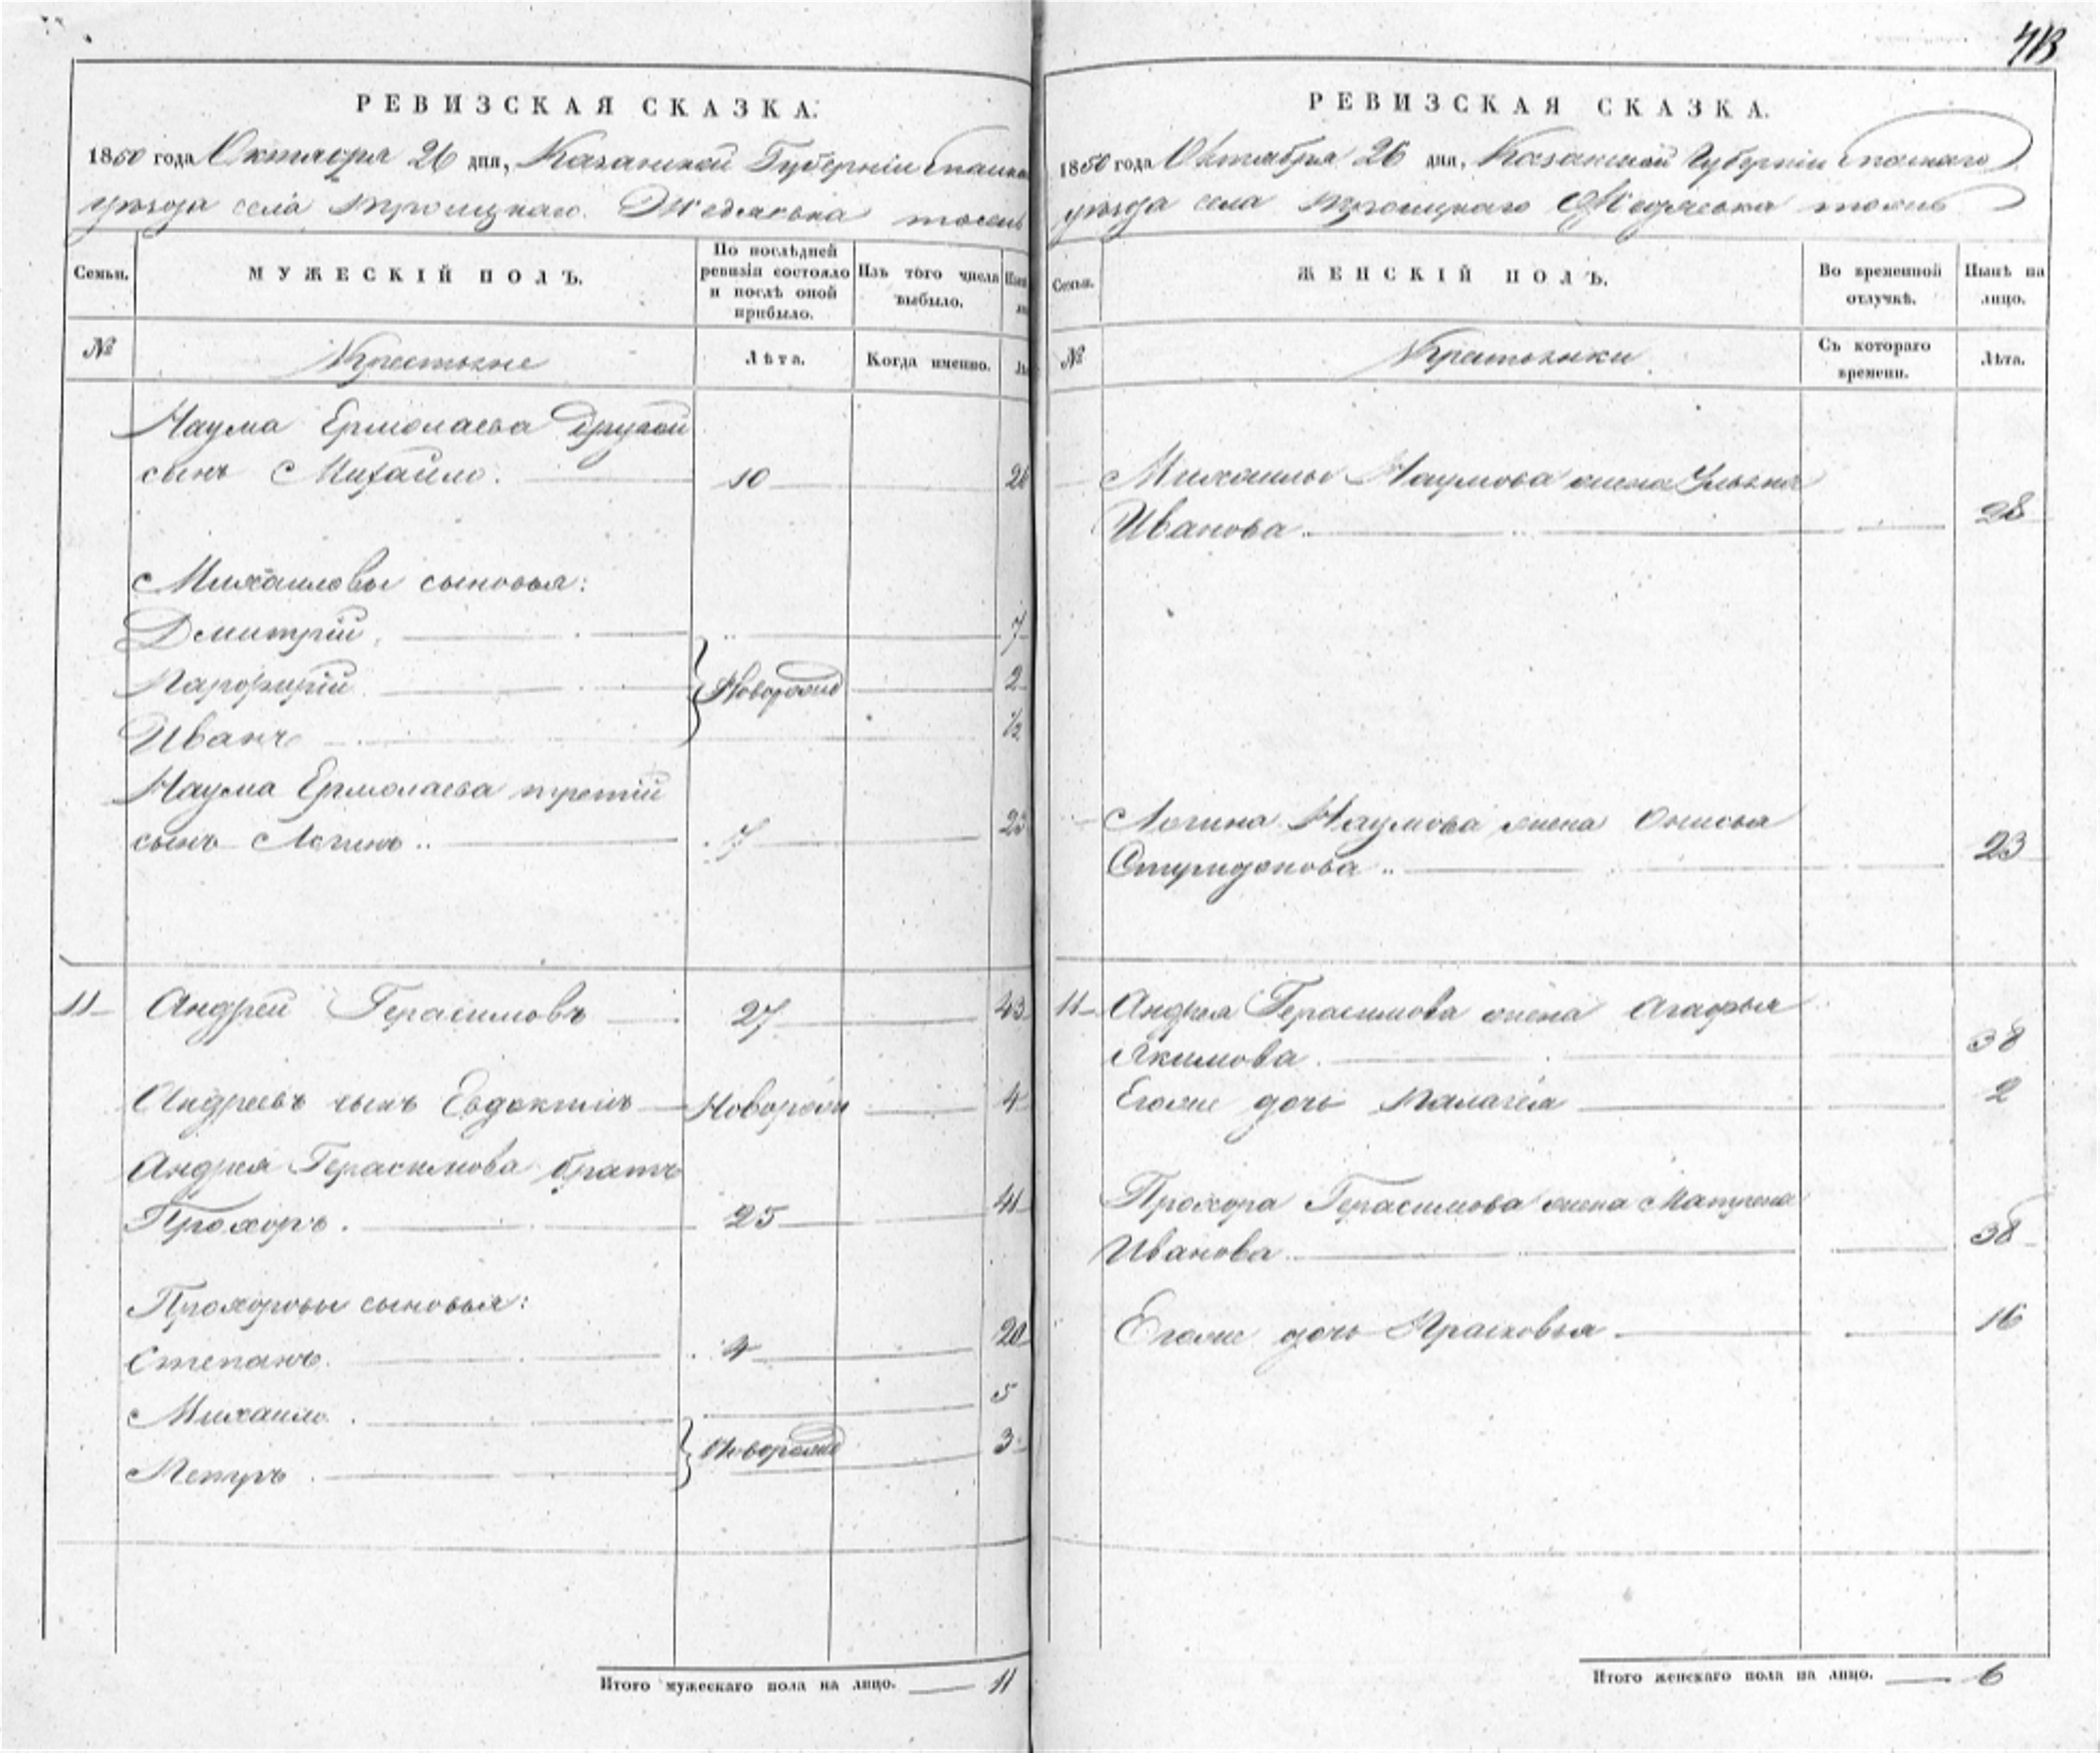 РЕВИЗСКАЯ СКАЗКА.
1850 года Октября 26 дня, Казанской Губерніи Спаска
уѣзда села Троицкаго
Семьи.
МУЖЕСКІЙ ПОЛЪ.
По послѣдней ревизіи состояло и послѣ оной прибыло.
Изъ того числа выбыло.
№
Крестьяне
Лѣта.
Когда именно.
Наума Ермолаева другой
сынъ Михайло. 10 26
Михайловы сыновья:
Дмитрій. 7
Парфирій Новорожд 2
Иванъ 1/2
Наума Ермолаева третій
сынъ Логинъ .. 7 23
11 Андрей Герасимовъ 27 43
Андреевъ сынъ Евдокимъ Новорожд 4
Андрея Герасимова братъ
Прохоръ. 25 41
Прохоровы сыновья:
Степанъ. 4 20
Михайло. 5
Петръ. Новорожд 3
Итого мужескаго пола на лицо. 11
РЕВИЗСКАЯ СКАЗКА.
1850 года Октября 26 дня, Казанской Губерніи Спаскаго
уѣзда села Троицкаго
Семьи.
ЖЕНСКІЙ ПОЛЪ.
Во временной отлучкѣ.
Нынѣ на лицо.
№
Крестьянки
Съ котораго времени.
Лѣта.
Михайлы Наумова жена Ульяна
Иванова. 28
Логина Наумова жена Онисья
Спиридонова .. 23
11 Андрея Герасимова жена Агафья
Якимова. 38
Егоже дочь Палагея 2
Прохора Герасимова жена Матрена
Иванова. 38
Егоже дочь Прасковья 16
Итого женскаго пола на лицо. 6